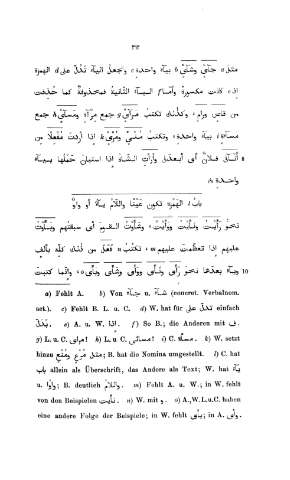 ٣٣
مثل جَآءٍ وشَآءٍ بياء واحدة وتجعل الياء تدلّ على الهمزة
اذا كانت مكسورة وامّا الياء الثانية فمحذوفة كما حذفت
من قاضٍ ورامٍ وكذلك تكتب مرآءى جمع مرآة ومسآءى جمع
مساءة بياء واحدة وتكتب اذا اردت مفعلا من
أنأى فلان أى أبعد وأرأت الشاة اذا استبان حملها بياء
واحدة
باب الهمزة تكون عينًا واللام ياء أو واو
نحو رأيت ونأيت ووأيت وشأوت القوم أى سبقتهم وبأوت
عليهم اذا تعظّمت عليهم تكتب فعل من ذلك كلّه بألف
وياء بعدها نحو رأى ونأى ووأى وشأى وبأى وانّما كتبت 10
a) Fehlt A. b) Von جآء u. شآء (concret. Verbalnom.
act.). c) Fehlt B. L. u. C. d) W. hat für تدلّ على einfach
يدلّ. e) A. u. W. اذا. f) So B.; die Anderen mit ف.
g) L. u. C. مرايى! h) L. u. C. مسائى! i) C. مسلّا. k) W. setzt
hinzu مثل مرع ومفع; B. hat die Nomina umgestellt. l) C. hat
باب allein als Überschrift, das Andere als Text; W. hat ياء
u. واوا; B. deutlich واللام. m) Fehlt A. u. W.; in W. fehlt
von den Beispielen نأيت. n) W. mit و. o) A., W. L. u. C. haben
eine andere Folge der Beispiele; in W. fehlt بأى; in A. وأى.